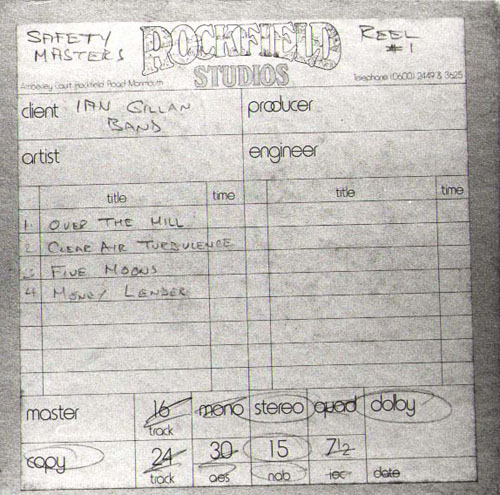 SAFETY MASTERS
ROCKFIELD STUDIOS
REEL #1
Amberley Court Rockfield Road Monmouth
Telephone (0600) 2449 & 3625
client IAN GILLAN BAND
producer
artist
engineer
title time title time
1 OVER THE HILL
2 CLEAR AIR TURBULENCE
3 FIVE MOONS
4 MONEY LENDER
master 16 track mono stereo quad dolby
copy 24 track 30 aes 15 nab 7½ iec date